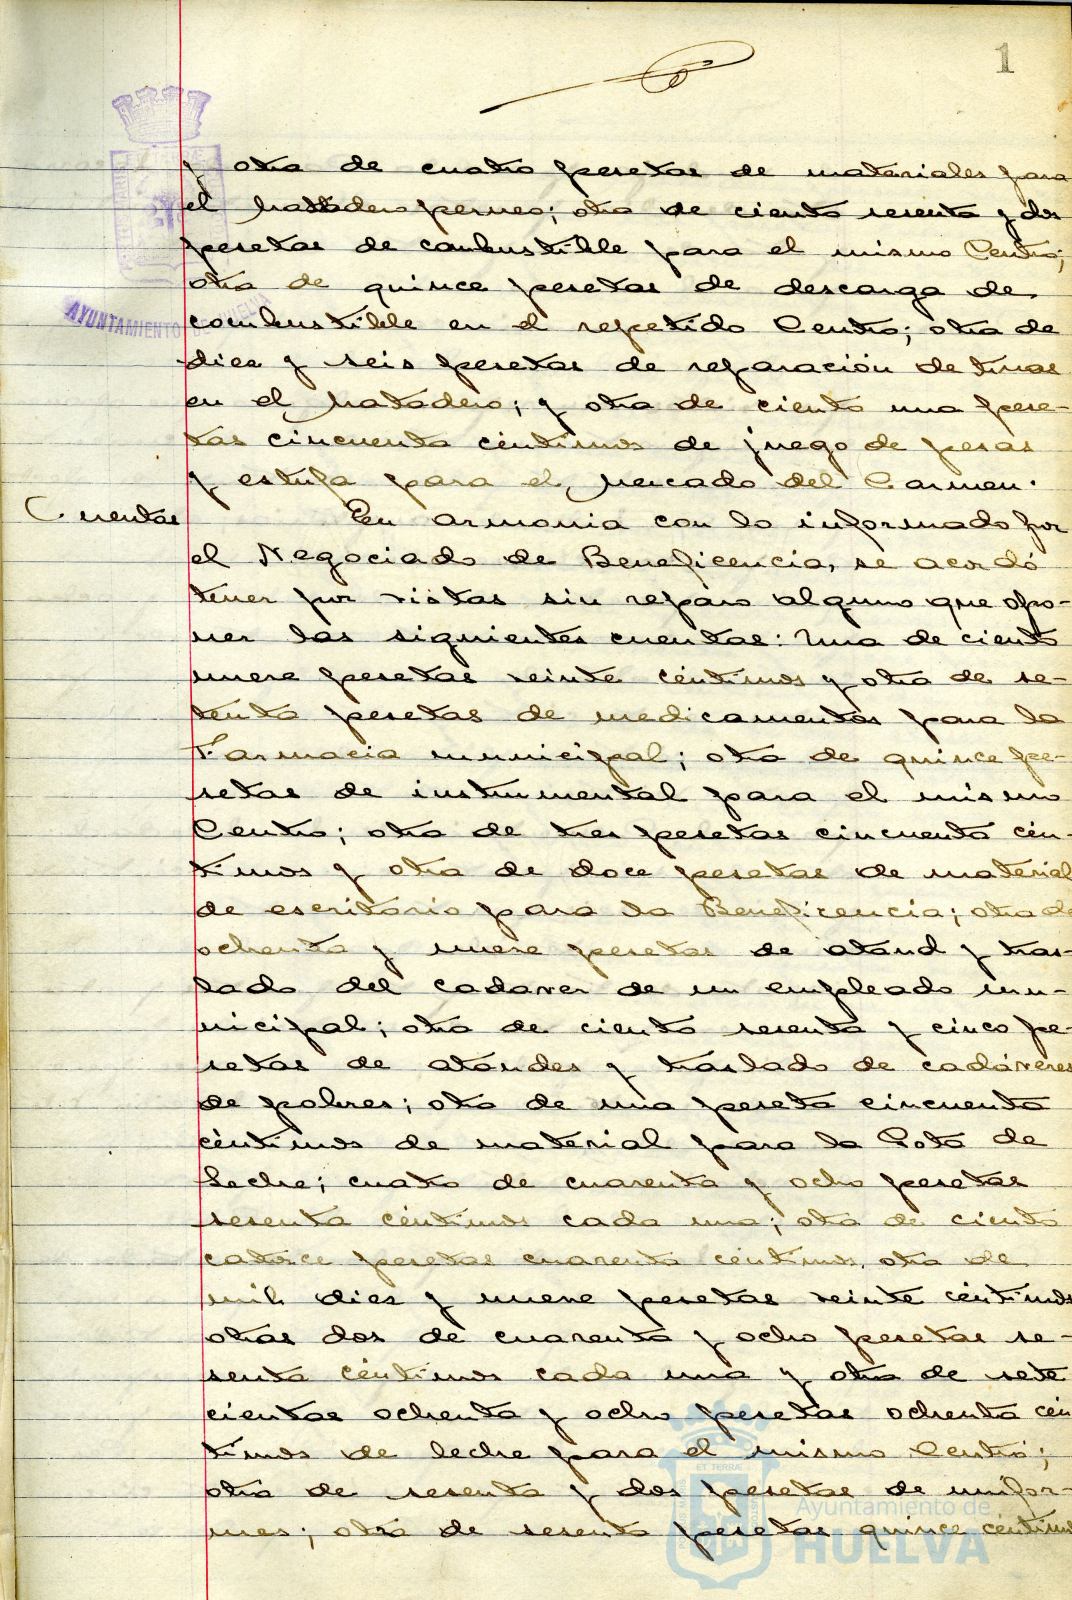 1
y otra de cuatro pesetas de materiales para
el Matadero pernes; otra de ciento sesenta y dos
pesetas de combustible para el mismo Centro;
otra de quince pesetas de descarga de
combustible en el repetido Centro; otra de
diez y seis pesetas de reparación de tinas
en el Matadero; y otra de ciento una pese-
tas cincuenta céntimos de juego de pesas
y estufa para el Mercado del Carmen.
Cuentas
En armonia con lo informado por
el Negociado de Beneficencia, se acordó
tener por vistas sin reparo alguno que opo-
ner las siguientes cuentas: Una de ciento
nueve pesetas veinte céntimos y otra de se-
tenta pesetas de medicamentos para la
Farmacia municipal; otra de quince pe-
setas de instrumental para el mismo
Centro; otra de tres pesetas cincuenta cén-
timos y otra de doce pesetas de material
de escritorio para la Beneficencia; otra de
ochenta y nueve pesetas de ataud y tras-
lado del cadaver de un empleado mu-
nicipal; otra de ciento sesenta y cinco pe-
setas de ataudes y traslado de cadáveres
de pobres; otra de una peseta cincuenta
céntimos de material para la Gota de
Leche; cuatro de cuarenta y ocho pesetas
sesenta céntimos cada una; otra de ciento
catorce pesetas cuarenta céntimos, otra de
mil diez y nueve pesetas veinte céntimos
otras dos de cuarenta y ocho pesetas se-
senta céntimos cada una y otra de sete
cientas ochenta y ocho pesetas ochenta cén
timos de leche para el mismo Centro;
otra de sesenta y dos pesetas de unifor-
mes; otra de sesenta pesetas quince céntimos
AYUNTAMIENTO DE HUELVA
Ayuntamiento de
HUELVA